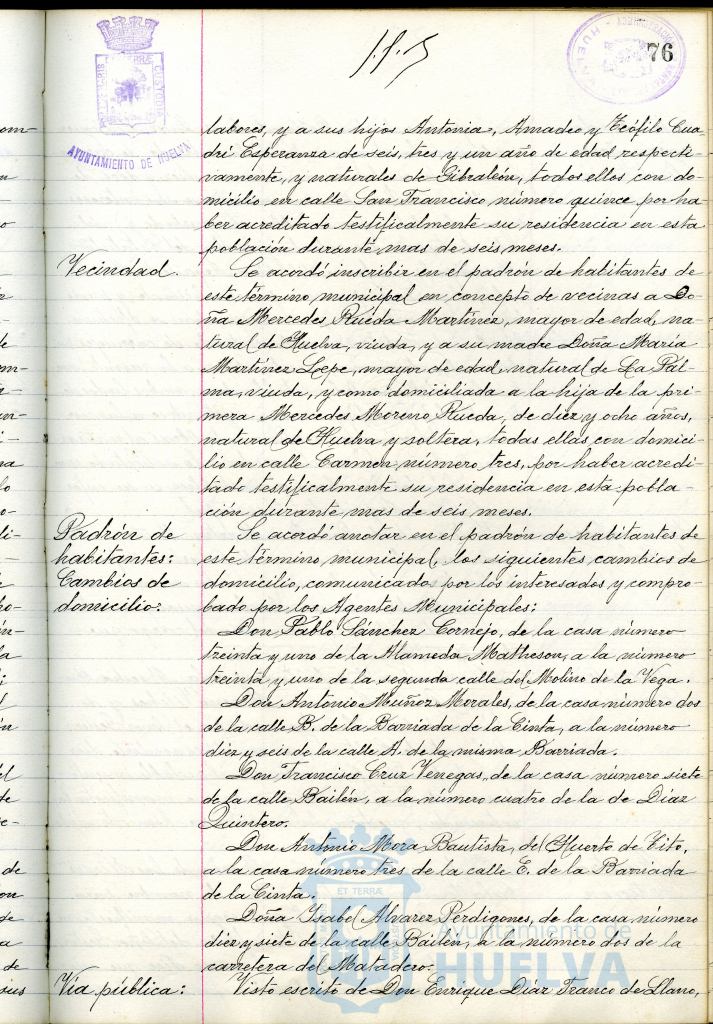 76
AYUNTAMIENTO DE HUELVA
labores, y a sus hijos Antonia, Amadeo y Teófilo Cua-
dri Esperanza de seis, tres y un año de edad respecti-
vamente, y naturales de Gibraleón, todos ellos con do-
micilio en calle San Francisco número quince por ha-
ber acreditado testificalmente su residencia en esta
población durante mas de seis meses.
Vecindad.
Se acordó inscribir en el padrón de habitantes de
este término municipal en concepto de vecinas a Do-
ña Mercedes Rueda Martínez, mayor de edad, na-
tural de Huelva, viuda, y a su madre Doña Maria
Martínez Lepe, mayor de edad, natural de La Pal-
ma, viuda, y como domiciliada a la hija de la pri-
mera Mercedes Moreno Rueda, de diez y ocho años,
natural de Huelva y soltera, todas ellas con domici-
lio en calle Carmen número tres, por haber acredi-
tado testificalmente su residencia en esta pobla-
ción durante mas de seis meses.
Padrón de
habitantes:
Cambios de
domicilio:
Se acordó anotar en el padrón de habitantes de
este término municipal, los siguientes cambios de
domicilio, comunicados por los interesados y compro-
bado por los Agentes Municipales:
Don Pablo Sánchez Cornejo, de la casa número
treinta y uno de la Alameda Matheson, a la número
treinta y uno de la segunda calle del Molino de la Vega.
Don Antonio Muñoz Morales, de la casa número dos
de la calle B. de la Barriada de la Cinta, a la número
diez y seis de la calle A. de la misma Barriada.
Don Francisco Cruz Venegas, de la casa número siete
de la calle Bailén, a la número cuatro de la de Diaz
Quintero.
Don Antonio Mora Bautista, del Huerto de Tito,
a la casa numero tres de la calle E. de la Barriada
de la Cinta.
Doña Isabel Alvarez Perdigones, de la casa número
diez y siete de la calle Bailén, a la número dos de la
carretera del Matadero.
Vía pública:
Visto escrito de Don Enrique Díaz Franco de Llano,
ET TERRÆ
Ayuntamiento de
HUELVA